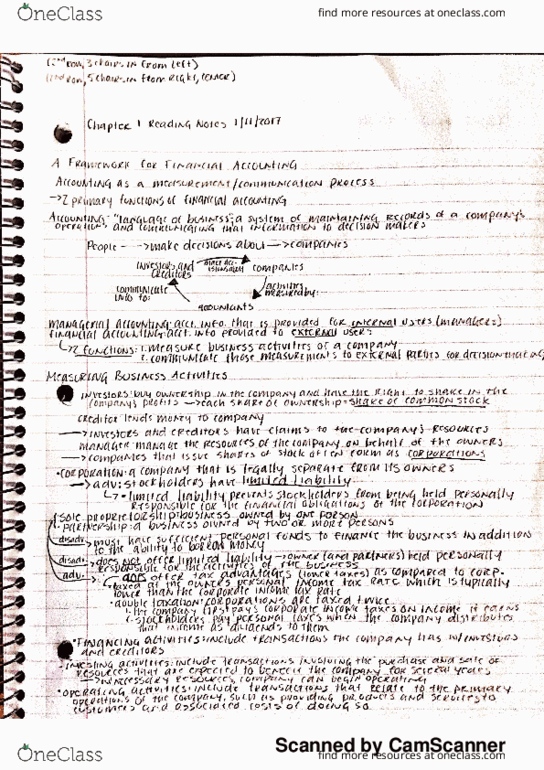 OneClass
find more resources at oneclass.com
(2nd row, 3 chairs in from left)
(2nd row, 5 chairs in from right,
Chapter 1 Reading Notes 1/11/2017
A Framework for Financial Accounting
Accounting as a measurement/communication process
→ 2 primary functions of financial accounting
Accounting: "language of business"; a system of maintaining records of a company's
operations and communicating that information to decision makers
People → make decisions about → companies
investors and creditors
make decisions about
companies
communicate info to:
activities measured by:
accountants
managerial accounting: acct. info that is provided for internal users (managers)
financial accounting: acct. info provided to external users
↳ 2 functions: 1. measure business activities of a company
2. communicate those measurements to external parties for decision making
Measuring Business Activities
investors: buy ownership in the company and have the right to share in the
company's profits → each share of ownership = share of common stock
creditor lends money to company
→ investors and creditors have claims to the company's resources
manager manage the resources of the company on behalf of the owners
→ companies that issue shares of stock often form as corporations
• corporation: a company that is legally separate from its owners
→ adv: stockholders have limited liability
↳ • limited liability prevents stockholders from being held personally
responsible for the financial obligations of the corporation
• sole proprietorship: business owned by one person
• partnership: a business owned by two or more persons
disadv → must have sufficient personal funds to finance the business in addition
to the ability to borrow money
disadv → does not offer limited liability → owner (and partners) held personally
responsible for the activities of the business
adv → does offer tax advantages (lower taxes) as compared to corp.
• taxed at the owner's personal income tax rate which is typically
lower than the corporate income tax rate
• double taxation: corporations are taxed twice
1. the company first pays corporate income taxes on income it earns
2. stockholders pay personal taxes when the company distributes
that income as dividends to them
• Financing activities: include transactions the company has w/investors
and creditors
• investing activities: include transactions involving the purchase and sale of
resources that are expected to benefit the company for several years
→ w/necessary resources, company can begin operating
• operating activities: include transactions that relate to the primary
operations of the company, such as providing products and services to
customers and associated costs of doing so
Scanned by CamScanner
OneClass
find more resources at oneclass.com